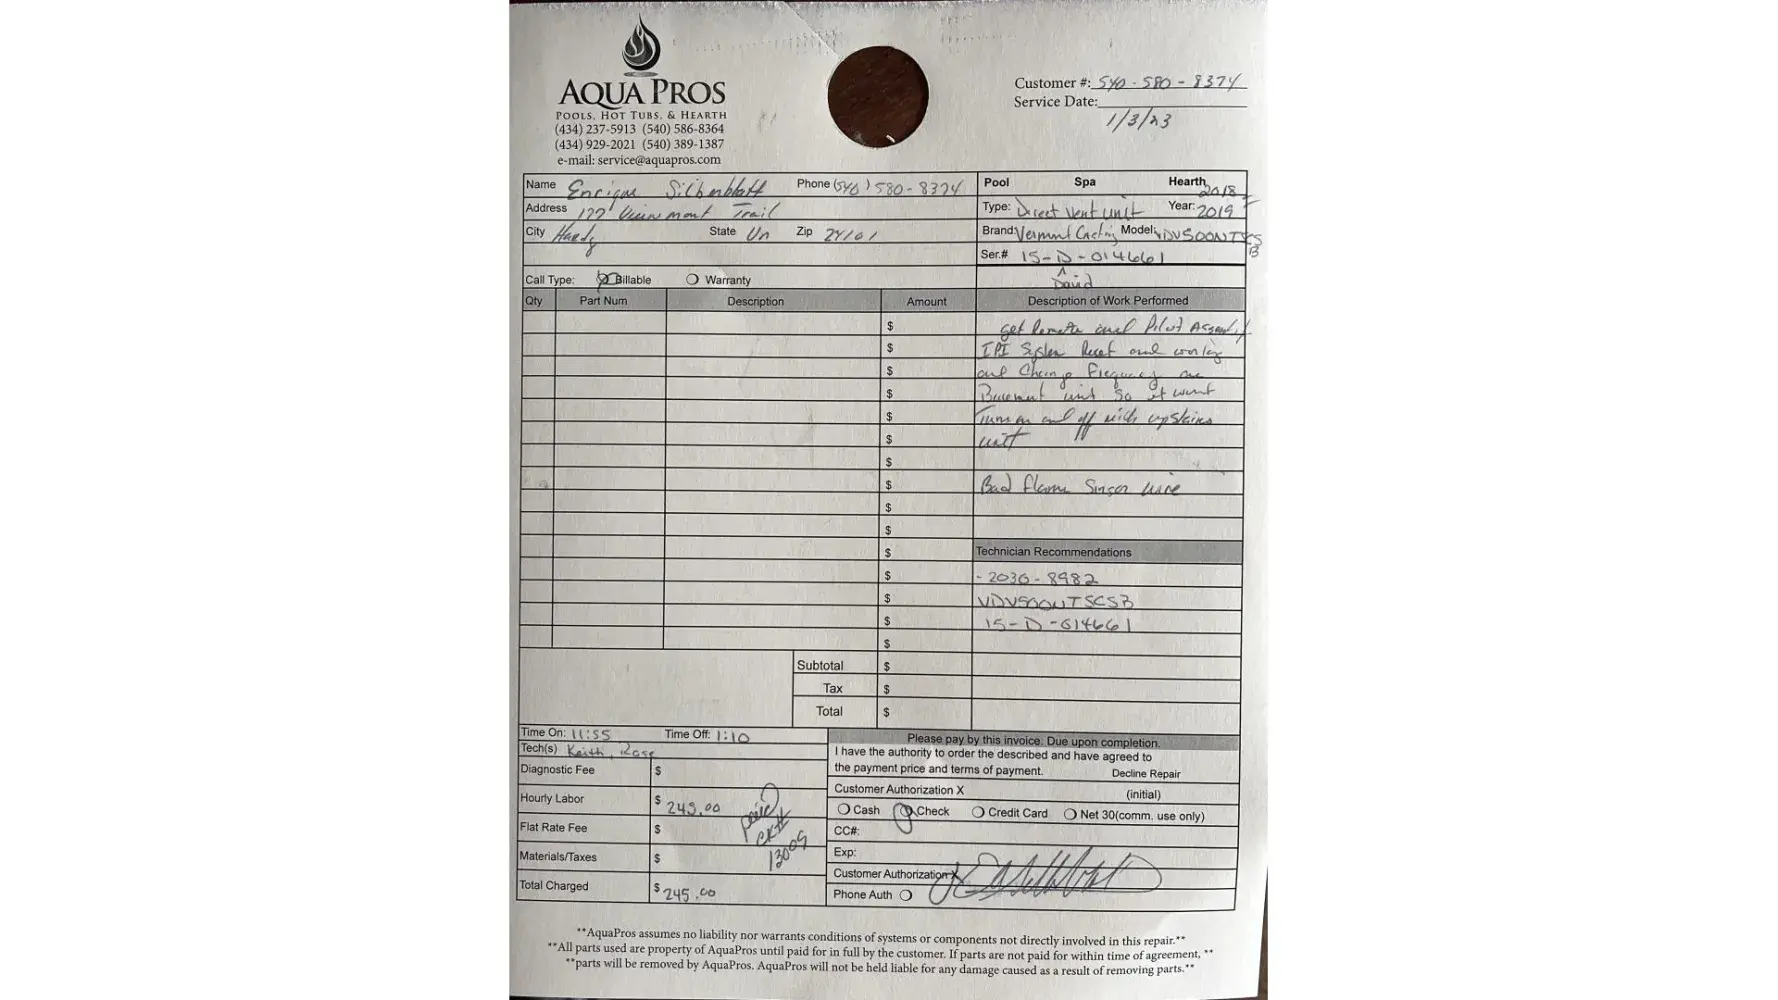 AQUA PROS
POOLS, HOT TUBS, & HEARTH
(434) 237-5913 (540) 586-8364
(434) 929-2021 (540) 389-1387
e-mail: service@aquapros.com
Customer #: 540-580-8374
Service Date:
1/3/23
Name Enrique Silberblatt Phone (540) 580-8374
Address 177 Trail
City Hardy State Va Zip 24101
Pool Spa Hearth
2018
Type: Direct Vent unit Year: 2019
Brand Vermont Casting Model:
Ser.# 15-D-014661
David
Call Type: Billable Warranty
Qty Part Num Description Amount Description of Work Performed
$ get Remote and Pilot
$ IPI System Reset and working
$ and Change Frequency on
$ Basement unit so it wont
$ Turn on and off with upstairs
$ unit
$
$ Bad flame Sinsor wire
$
$
$ Technician Recommendations
$ - 2030-8982
$ VDV500NTSCSB
$ 15-D-014661
$
Subtotal $
Tax $
Total $
Time On: 11:55 Time Off: 1:10
Tech(s) Keith,
Diagnostic Fee $
Hourly Labor $ 245.00
Flat Rate Fee $
Materials/Taxes $
Total Charged $ 245.00
paid
CK#
13009
Please pay by this invoice. Due upon completion.
I have the authority to order the described and have agreed to
the payment price and terms of payment. Decline Repair
Customer Authorization X (initial)
Cash Check Credit Card Net 30(comm. use only)
CC#:
Exp:
Customer Authorization X
Phone Auth
**AquaPros assumes no liability nor warrants conditions of systems or components not directly involved in this repair.**
**All parts used are property of AquaPros until paid for in full by the customer. If parts are not paid for within time of agreement, **
**parts will be removed by AquaPros. AquaPros will not be held liable for any damage caused as a result of removing parts.**